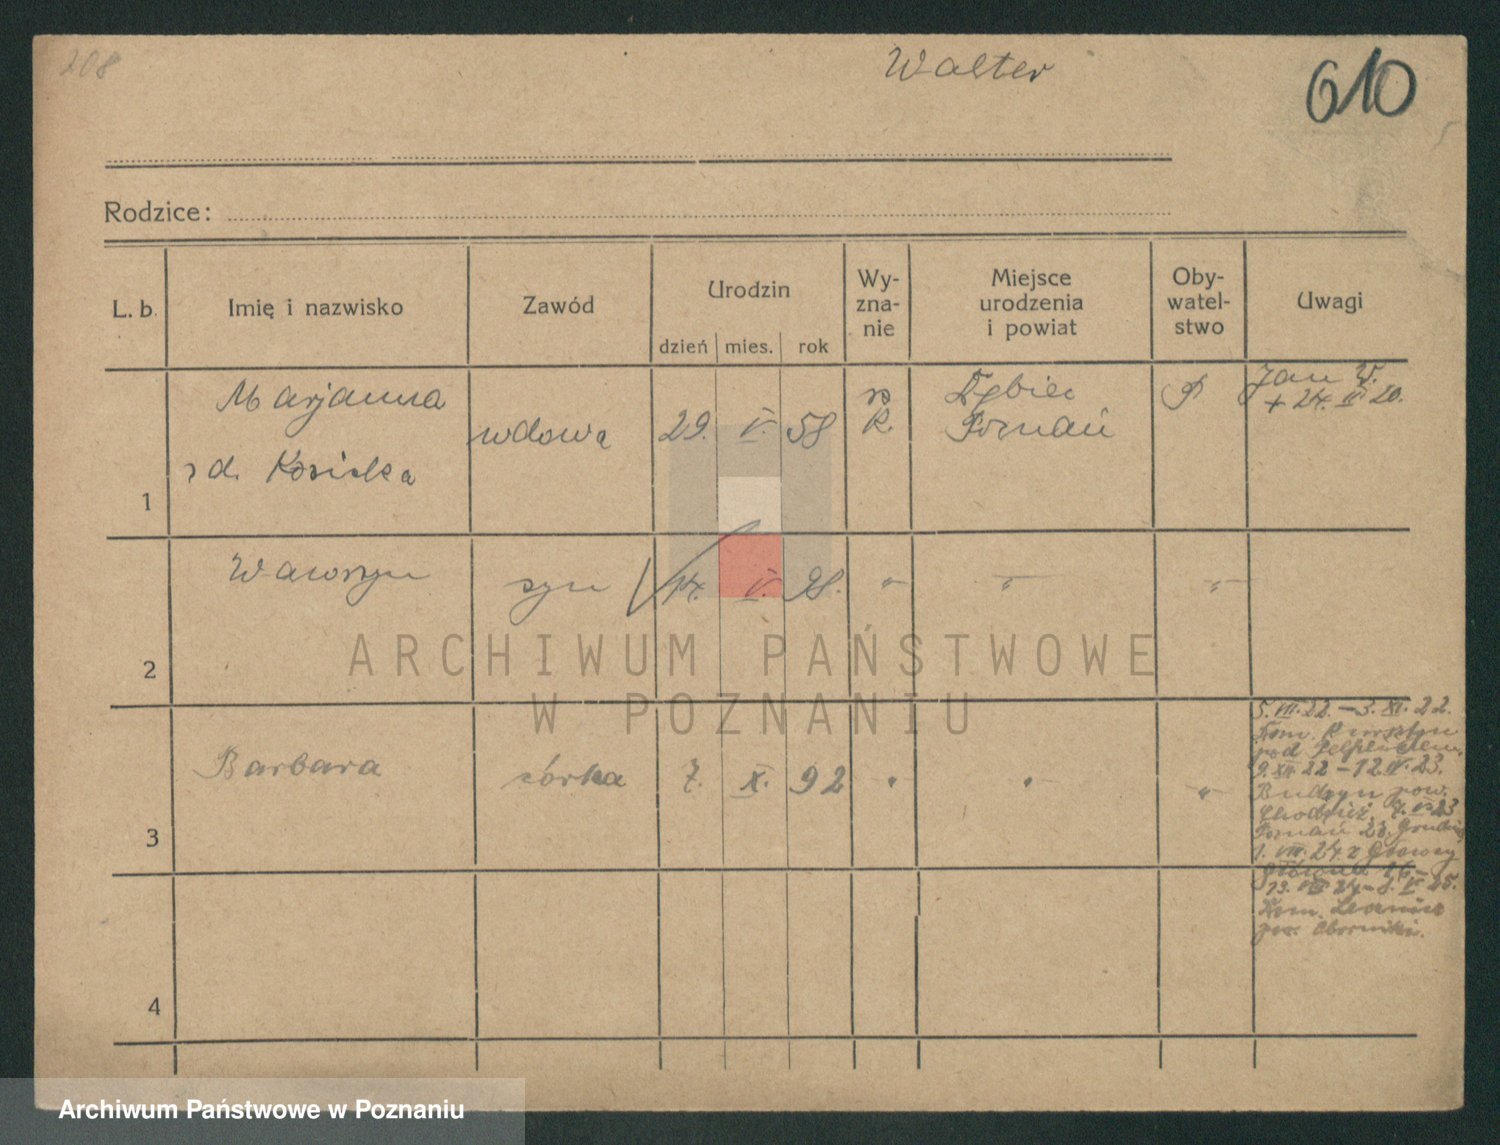 208
Walter
610
Rodzice:
L. b.
Imię i nazwisko
Zawód
Urodzin
dzień mies. rok
Wy-
zna-
nie
Miejsce
urodzenia
i powiat
Oby-
watel-
stwo
Uwagi
1
Marjanna
z d. Kosicka
wdowa
29. V. 58
rz
k.
Dębiec
Poznań
P
Jan W.
+ 24. II 20.
2
Wawrzyn
syn
14. V. 98.
"
"
"
3
Barbara
córka
7. X. 92
"
"
"
5. VII. 22. – 3. XI. 22.
pod Pelplinem
9. XII 22 – 12. IV. 23.
Budzyn pow.
Chodzież
1. VII. 24 z
Główna 16 –
pow. Oborniki.
4
ARCHIWUM PAŃSTWOWE
W POZNANIU
Archiwum Państwowe w Poznaniu